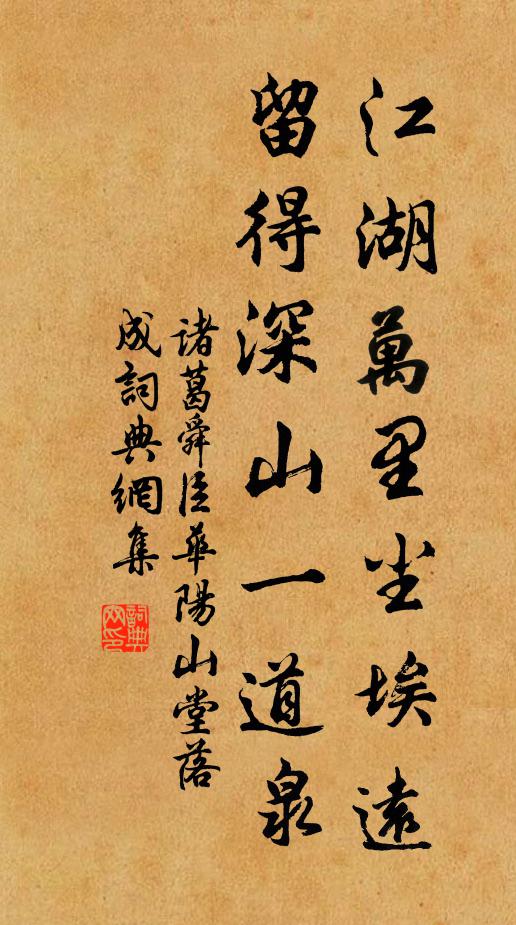 江湖萬里尘埃遠
留得深山一道泉
諸葛舜臣華陽山堂落
成詞典網集
詞典
网印